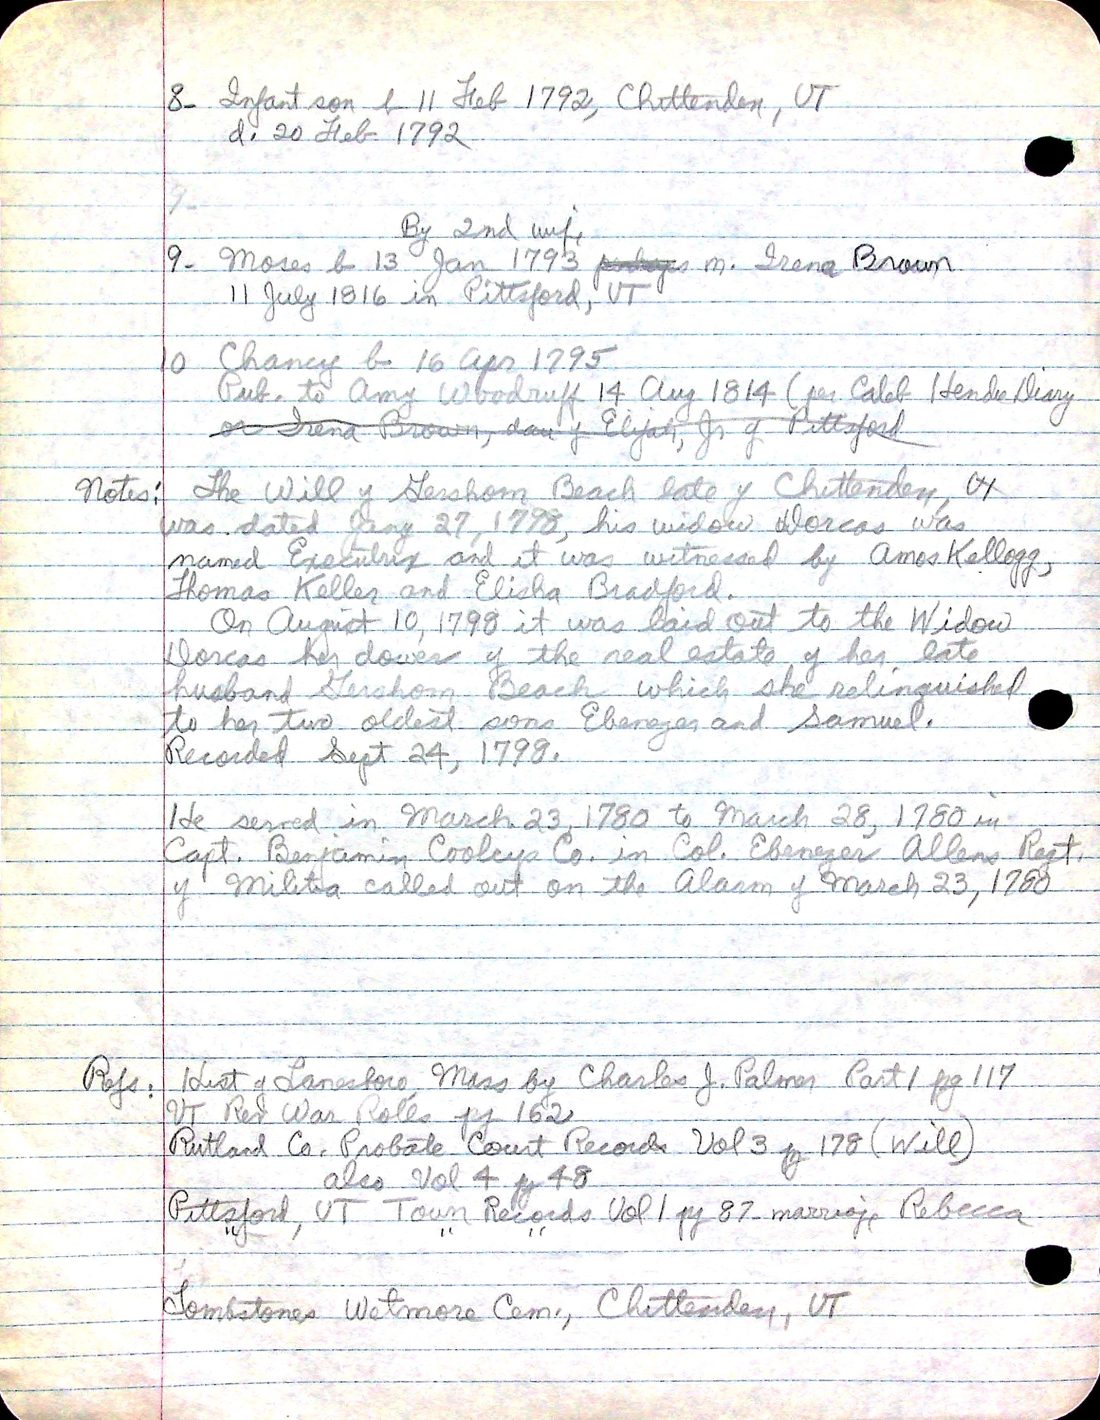 8- Infant son b 11 Feb 1792, Chittenden, VT
d. 20 Feb 1792
9-
By 2nd wife
9- Moses b 13 Jan 1793 perhaps m. Irena Brown
11 July 1816 in Pittsford, VT
10 Chancy b 16 Apr 1795
Pub. to Amy Woodruff 14 Aug 1814 (per Caleb Hendee Diary
or Irena Brown, dau of Elijah, Jr of Pittsford
Notes: The Will of Gershom Beach late of Chittenden, Vt
was dated Jany 27, 1798, his widow Dorcas was
named Executrix and it was witnessed by Amos Kellogg,
Thomas Keller and Elisha Bradford.
On August 10, 1798 it was laid out to the Widow
Dorcas her dower of the real estate of her late
husband Gershom Beach which she relinquished
to her two oldest sons Ebenezer and Samuel.
Recorded Sept 24, 1798.
He served in March 23, 1780 to March 28, 1780 in
Capt. Benjamin Cooleys Co. in Col. Ebenezer Allens Regt.
of Militia called out on the Alarm of March 23, 1780
Refs: Hist of Lanesboro, Mass by Charles J. Palmer Part 1 pg 117
VT Rev War Roles pg 162
Rutland Co. Probate Court Records Vol 3 pg 178 (Will)
also Vol 4 pg 48
Pittsford, VT Town Records Vol 1 pg 87 marriage Rebecca
" " "
Tombstones Wetmore Cem., Chittenden, VT